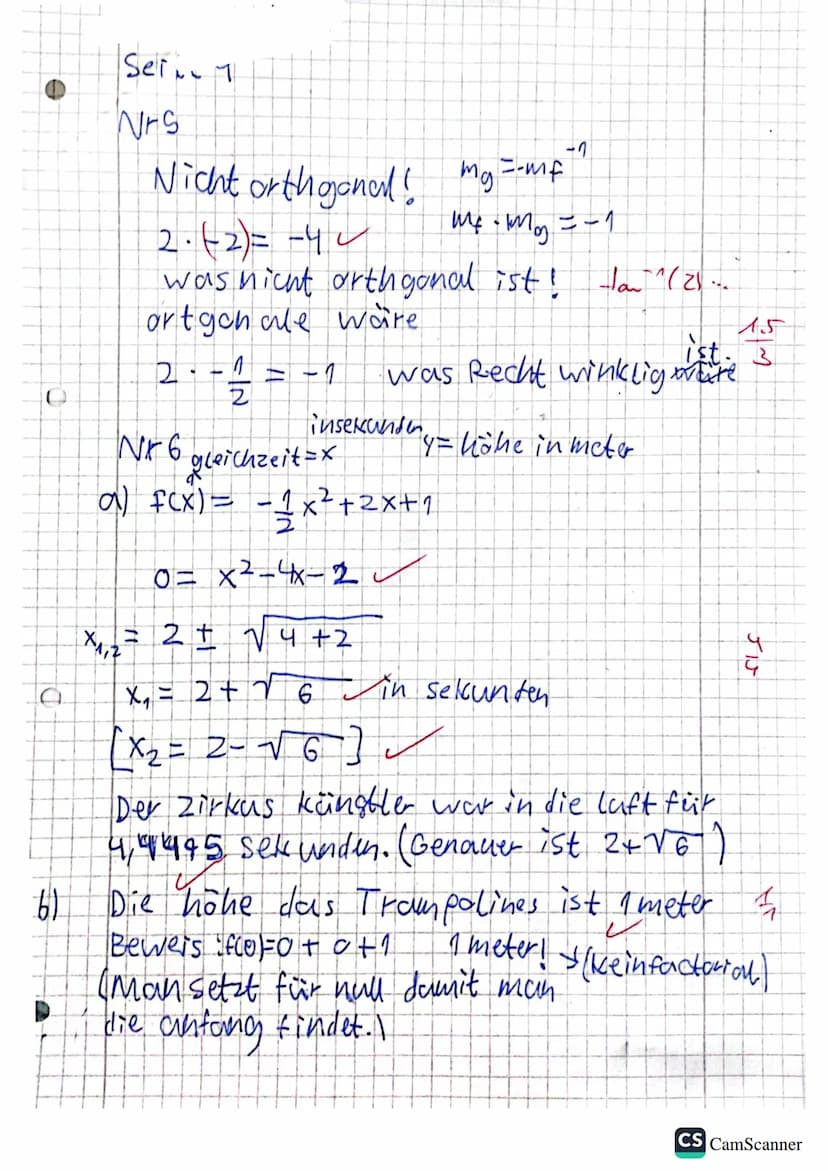 Sei... 1
Nr 5
Nicht orthgonal! mg = -mf⁻¹
2 · (-2) = -4 ✓ mf · mg = -1
was nicht orthgonal ist! tan⁻¹(2)...
ortgonale wäre
1.5/3
2 · -1/2 = -1 was Recht winklig ist.
Nr 6 gleichzeit = x insekunden y = höhe in meter
a) f(x) = -1/2 x² + 2x + 1
0 = x² - 4x - 2 ✓
x₁,₂ = 2 ± √4 + 2
4/4
x₁ = 2 + √6 ✓ in sekunten
[x₂ = 2 - √6] ✓
Der zirkus künstler war in die luft für
4,4495 sekunden. (Genauer ist 2+√6)
b) Die höhe das Trampolines ist 1 meter 1/1
Beweis : f(0) = 0 + 0 + 1 1 meter! → (keinfactorial)
(Man setzt für null damit man
die anfang findet.)
CS CamScanner